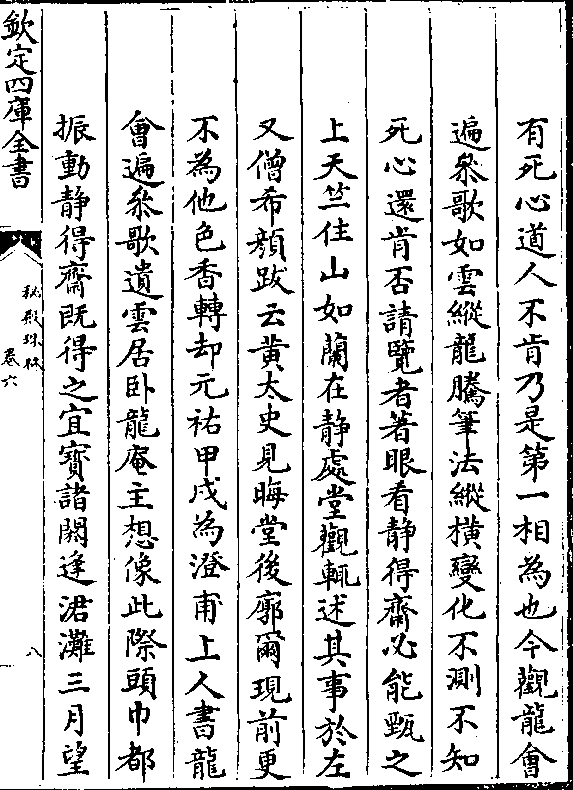 有死心道人不肯乃是第一相為也今觀龍會
遍叅歌如雲縱龍騰筆法縱橫變化不測不知
死心還肯否請覽者著眼看静得齋必能甄之
上天竺住山如蘭在静處堂觀輒述其事於左
又僧希顔跋云黄太史見晦堂後廓爾現前更
不為他色香轉却元祐甲戌為澄甫上人書龍
會遍叅歌遺雲居卧龍庵主想像此際頭巾都
振動静得齋既得之宜寳諸閼逢涒灘三月望
欽定四庫全書
秘殿珠林
卷六
八